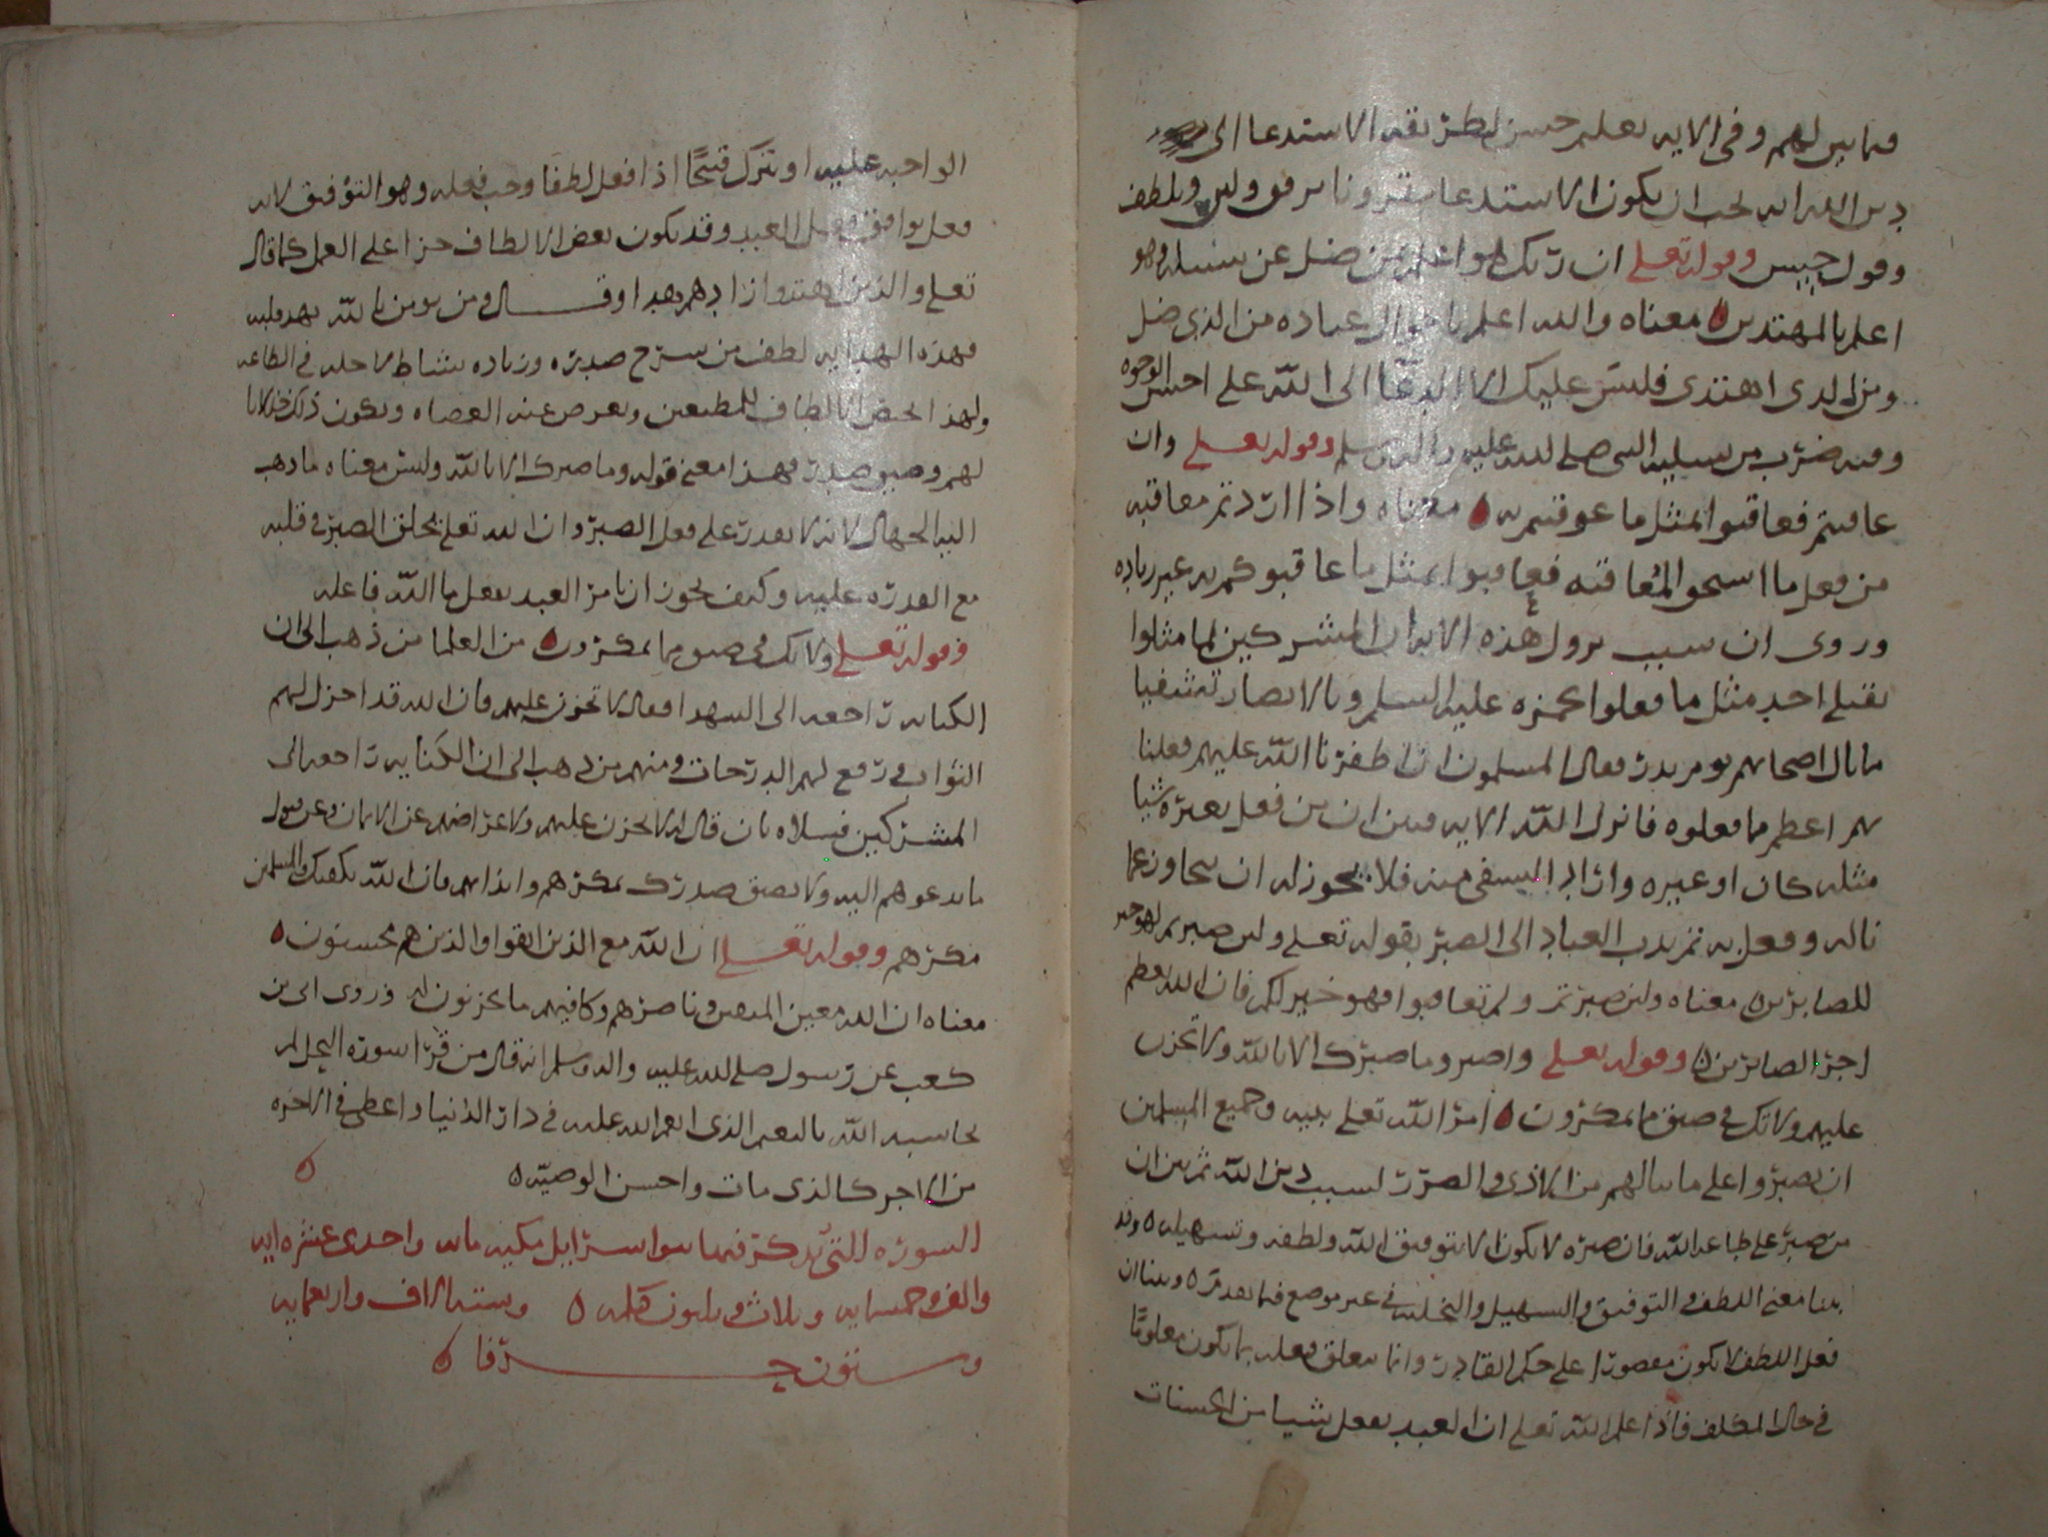 فيما بين لهم وفي الايه تعليم حسن لطريقه الاستدعا الى
دين الله انه يجب ان يكون الاستدعا مقرونا برفق ولين ولطف
وقول حسن وقوله تعلى ان ربك هو اعلم بمن ضل عن سبيله وهو
اعلم بالمهتدين معناه والله اعلم باحوال عباده من الذي ضل
ومن الذي اهتدى فليس عليك الا الدعا الى الله على احسن الوجوه
وفيه ضرب من تسليه النبي صلى الله عليه واله وسلم وقوله تعلى وان
عاقبتم فعاقبوا بمثل ما عوقبتم به معناه واذا اردتم معاقبه
من فعل ما استحق المعاقبه فعاقبوا بمثل ما عاقبوكم به غير زياده
وروى ان سبب نزول هذه الايه ان المشركين لما مثلوا
بقتلى احد مثل ما فعلوا بحمزه عليه السلم وبالانصار تشفيا
ما نال اصحابهم يوم بدر فقال المسلمون ان اظفرنا الله عليهم فعلنا
بهم اعظم مما فعلوه فانزل الله الايه فبين ان من فعل بغيره شيا
مثله كان او غيره واراد التشفي منه فلا يجوز له ان يتجاوز عما
ناله وفعل به ثم ندب العباد الى الصبر بقوله تعلى ولئن صبرتم لهو خير
للصابرين معناه ولئن صبرتم ولم تعاقبوا فهو خير لكم فان الله يعظم
اجر الصابرين وقوله تعلى واصبر وما صبرك الا بالله ولا تحزن
عليهم ولا تك في ضيق مما يمكرون امر الله تعلى نبيه وجميع المسلمين
ان يصبروا على ما ينالهم من الاذى والضرر لسبب دين الله ثم بين ان
من صبر على طاعه الله فان صبره لا يكون الا بتوفيق الله ولطفه وتسهيله وقد
بينا معنى اللطف والتوفيق والتسهيل والتخليه في غير موضع فيما تقدم وبينا ان
فعل اللطف لا يكون مقصورا على حكم القادر وانما يتعلق فعله بما يكون معلوما
في حال المكلف فاذا علم الله تعلى ان العبد يفعل شيا من الحسنات
الواجبه عليه او يترك قبيحا اذا فعل لطفا وجب فعله وهو التوفيق لانه
فعل يوافق فعل العبد وقد يكون بعض الالطاف جزا على العمل كما قال
تعلى والذين اهتدوا زادهم هدا وقال ومن يومن بالله يهد قلبه
فهذه الهدايه لطف من شرح صدره وزياده نشاط لاجله في الطاعه
ولهذا يخص الالطاف للمطيعين ويعرض عنه العصاه ويكون ذلك خذلانا
لهم وضيق صدر فهذا معنى قوله وما صبرك الا بالله وليس معناه ما ذهب
اليه الجهال لانه لا يقدر على فعل الصبر وان الله تعلى يخلق الصبر في قلبه
مع القدره عليه وكيف يجوز ان يامر العبد بفعل ما الله فاعله
وقوله تعلى ولا تك في ضيق مما يمكرون من العلما من ذهب الى ان
الكنايه راجعه الى الشهدا فقال لا تحزن عليهم فان الله قد اجزل لهم
الثواب ورفع لهم الدرجات ومنهم من ذهب الى ان الكنايه راجعه الى
المشركين فسلاه بان قال له لا تحزن عليهم ولاعراضهم عن الايمان وعن قبول
ما يدعوهم اليه ولا يضيق صدرك بمكرهم وايذايهم فان الله يكفيك والمسلمين
مكرهم وقوله تعلى ان الله مع الذين اتقوا والذين هم محسنون
معناه ان الله معين المتقين وناصرهم وكافيهم ما يحزنون له وروى ابى بن
كعب عن رسول صلى الله عليه واله وسلم انه قال من قرا سورة النحل لم
يحاسبه الله بالنعم الذي انعم الله عليه في دار الدنيا واعطى في الاخره
من الاجر كالذي مات واحسن الوصيه
السوره التي يذكر فيها بنوا اسرايل مكيه مايه واحدى عشره ايه
والف وخمسمايه وثلاث وثلثون كلمه وسته الاف واربعمايه
وستون حرفا